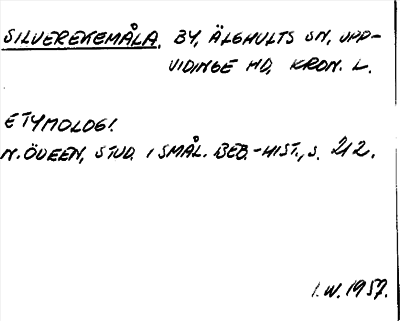 SILVEREKEMÅLA, BY, ÄLGHULTS SN, UPP-
VIDINGE HD, KRON. L.
ETYMOLOGI.
N. ÖDEEN, STUD. I SMÅL. BEB.-HIST., S. 212.
I.W. 1957.